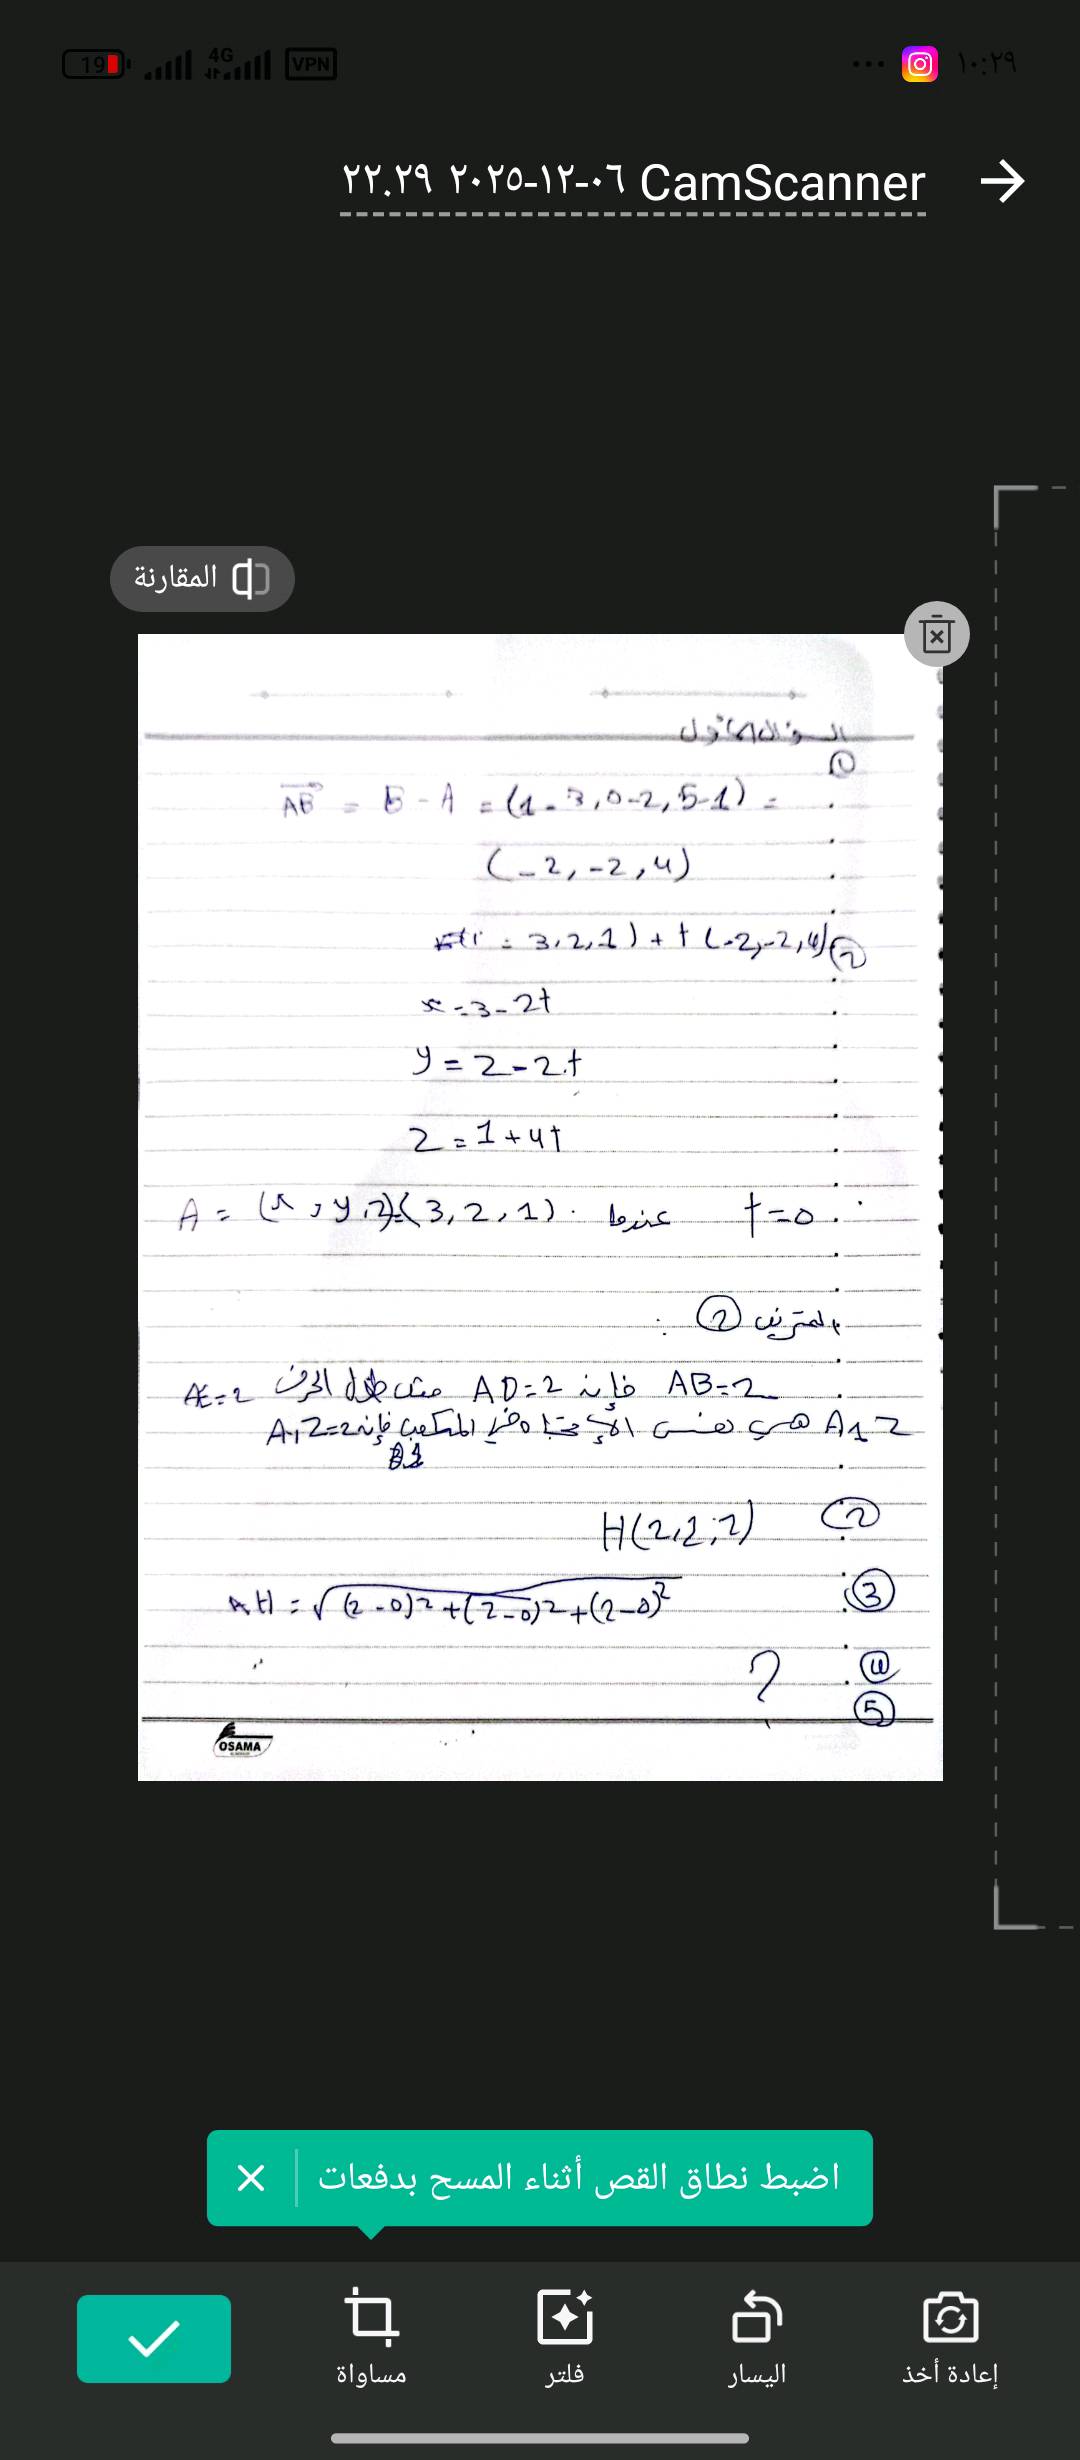 ١٠:٢٩
4G
VPN
19
CamScanner ٠٦-١٢-٢٠٢٥ ٢٢.٢٩
المقارنة
السؤال الأول
①
AB = B - A = (1-3,0-2,5-1) =
(-2,-2,4)
② = 3,2,1) + t(-2,-2,4)
x=3-2t
y=2-2t
z=1+4t
t=0 عندما A = (x,y,z)=(3,2,1)
التمرين ② :
AB=2 فإنه AD=2 طول الحرف AE=2
هي نفس المكعب فإنه
② H(2,2,2)
③ AH = √(2-0)2+(2-0)2+(2-0)2
④ ?
⑤
OSAMA
اضبط نطاق القص أثناء المسح بدفعات
إعادة أخذ
اليسار
فلتر
مساواة